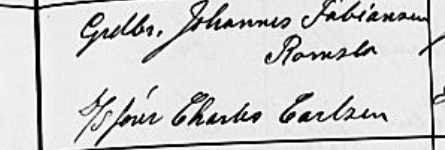 Grdbr. Johannes Fabiansen
Romsla
S/s fører Charles Carlsen